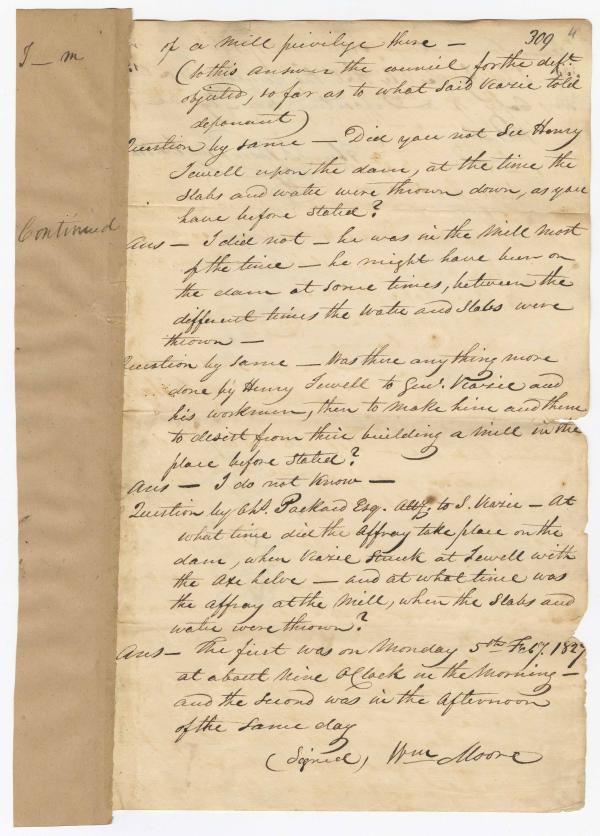 309 4
J-m
of a Mill privilige there —
(to this answer the council for the deft.
objected, so far as to what Said Veazie told
deponant)
Question by same — Did you not See Henry
Jewell upon the dam, at the time the
Slabs and water were thrown down, as you
have before Stated?
Continued
Ans — I did not — he was in the Mill most
of the time — he might have been on
the dam at Some times, between the
different times the Water and Slabs were
thrown —
Question by Same — Was there any thing more
done by Henry Jewell to Genl. Veazie and
his workmen, then to make him and them
to desist from their building a Mill in the
place before Stated?
Ans — I do not Know —
Question by Chs. Packard Esq. Atty. to S. Veazie — At
what time did the Affray take place on the
dam, when Veazie Struck at Jewell with
the Axe helve — and at what time was
the affray at the Mill, when the Slabs and
water were thrown?
Ans — The first was on Monday 5th Feby. 1827
at about Nine OClock in the Morning —
and the Second was in the Afternoon
of the Same day
(Signed) Wm Moore